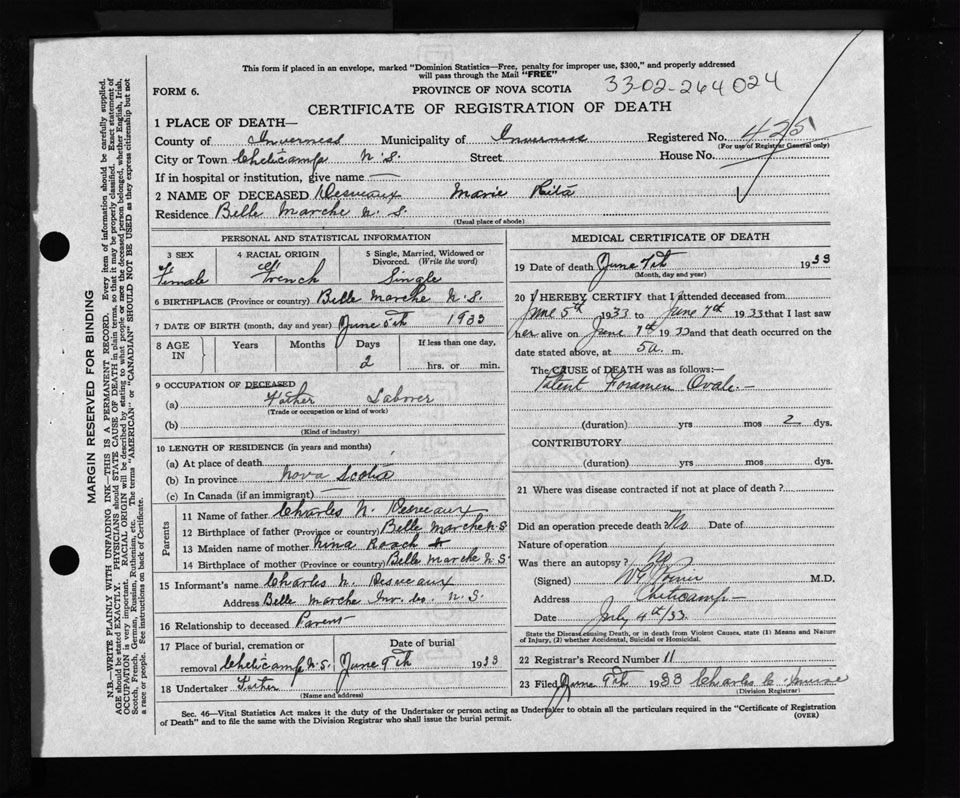 This form if placed in an envelope, marked "Dominion Statistics—Free, penalty for improper use, $300," and properly addressed
will pass through the Mail "FREE"
FORM 6.
PROVINCE OF NOVA SCOTIA
33-02-264024
CERTIFICATE OF REGISTRATION OF DEATH
1 PLACE OF DEATH—
County of Inverness Municipality of Inverness Registered No. 425
(For use of Registrar General only)
City or Town Cheticamp N. S. Street House No.
If in hospital or institution, give name —
2 NAME OF DECEASED Desveaux Marie Rita
Residence Belle Marche N. S.
(Usual place of abode)
PERSONAL AND STATISTICAL INFORMATION
3 SEX 4 RACIAL ORIGIN 5 Single, Married, Widowed or
Divorced. (Write the word)
Female French Single
6 BIRTHPLACE (Province or country) Belle Marche N. S.
7 DATE OF BIRTH (month, day and year) June 5th 1933
8 AGE IN Years Months Days If less than one day,
2 hrs. or min.
9 OCCUPATION OF DECEASED
(a) Father Laborer
(Trade or occupation or kind of work)
(b)
(Kind of industry)
10 LENGTH OF RESIDENCE (in years and months)
(a) At place of death
(b) In province Nova Scotia
(c) In Canada (if an immigrant) —
Parents
11 Name of father Charles N. Desveaux
12 Birthplace of father (Province or country) Belle Marche N.S
13 Maiden name of mother Nina Roach
14 Birthplace of mother (Province or country) Belle Marche N S
15 Informant's name Charles N. Desveaux
Address Belle Marche Inv. Co. N. S.
16 Relationship to deceased Parent
17 Place of burial, cremation or Date of burial
removal Cheticamp N. S. June 9th 1933
18 Undertaker Father
(Name and address)
MEDICAL CERTIFICATE OF DEATH
19 Date of death June 7th 1933
(Month, day and year)
20 I HEREBY CERTIFY that I attended deceased from
June 5th 1933 to June 7th 1933 that I last saw
her alive on June 7th 1933 and that death occurred on
the date stated above, at 5 a. m.
The CAUSE of DEATH was as follows:—
Patent Foramen Ovale.—
(duration) yrs mos 2 dys.
CONTRIBUTORY
(duration) yrs mos dys.
21 Where was disease contracted if not at place of death ?
Did an operation precede death No Date of
Nature of operation
Was there an autopsy? No
(Signed) M.D.
Address Cheticamp—
Date July 4th/33.
State the Disease causing Death, or in death from Violent Causes, state (1) Means and Nature
of Injury, (2) whether Accidental, Suicidal or Homicidal.
22 Registrar's Record Number 11
23 Filed June 9th 1933 Charles
(Division Registrar)
Sec. 46—Vital Statistics Act makes it the duty of the Undertaker or person acting as Undertaker to obtain all the particulars required in the "Certificate of Registration
of Death" and to file the same with the Division Registrar who shall issue the burial permit. (OVER)
MARGIN RESERVED FOR BINDING
N.B.—WRITE PLAINLY WITH UNFADING INK—THIS IS A PERMANENT RECORD. Every item of information should be carefully supplied.
AGE should be stated EXACTLY. PHYSICIANS should STATE CAUSE OF DEATH in plain terms, so that it may be properly classified. Exact statement of
OCCUPATION is very important. RACIAL ORIGIN will be described by stating to what people or race the deceased person belonged, whether English, Irish,
Scotch, French, German, Russian, Ruthenian, etc. The terms "AMERICAN" or "CANADIAN" SHOULD NOT BE USED as they express citizenship but not
a race or people. See instructions on back of Certificate.